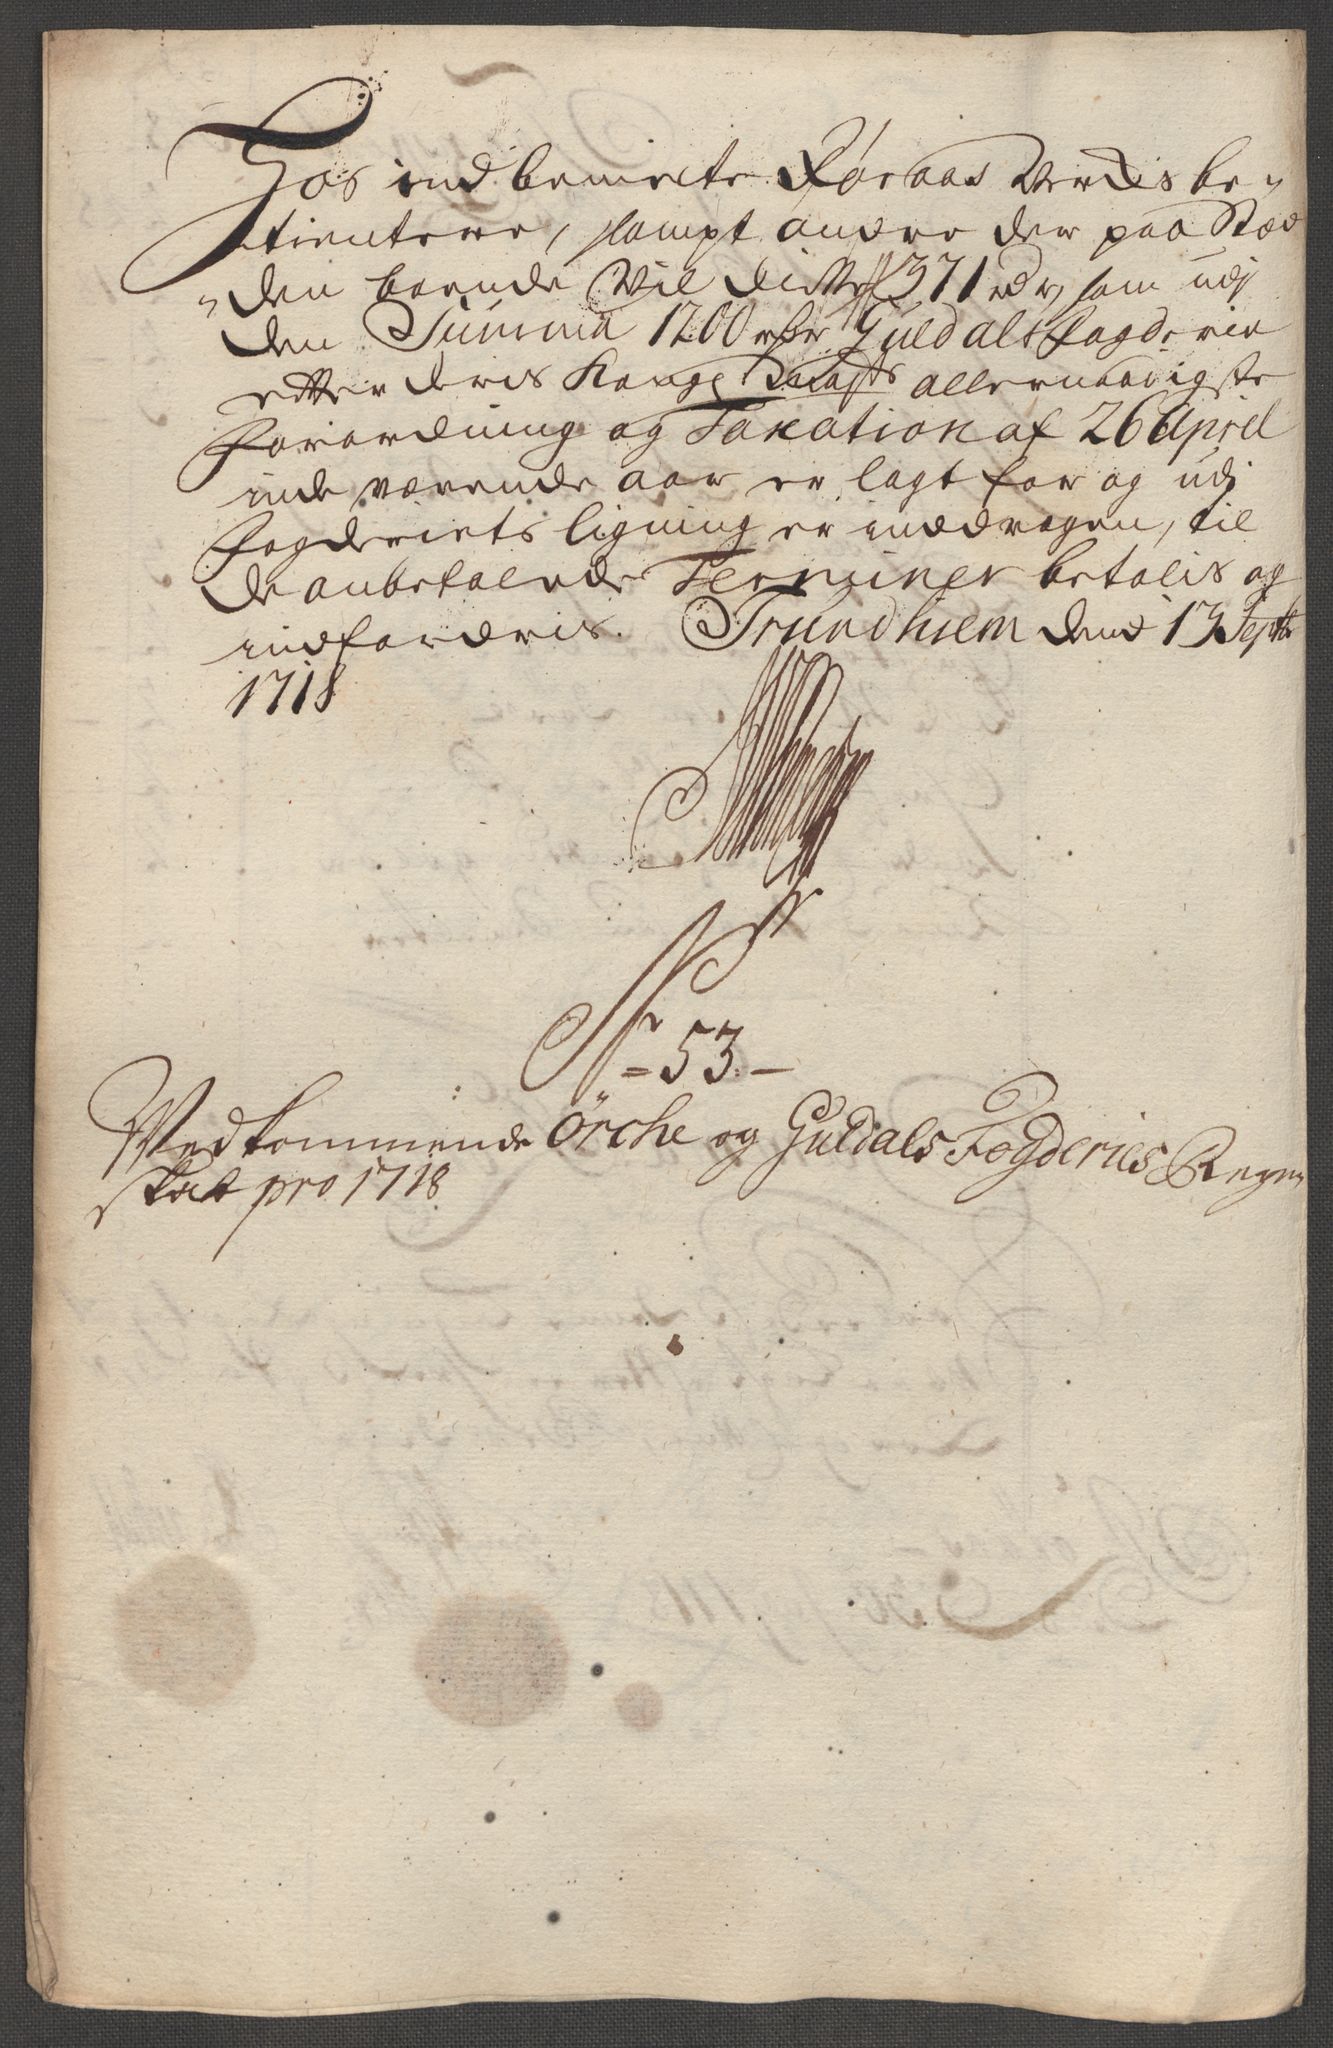 Hos indbemelte Røraas Verckis be-
tientere, sampt andre der paa Stæd
den boende Vil disse 371 rdr, som udj
den Summa 1200 rdr Guldals fogderie
efter deris Kongl Mayts allernaadigste
forordning og Taxation af 26 Aprel
indeværende aar er lagt for og udj
fogderiets ligning er inddragen, til
de anbefalede Terminer betalis og
indfordris. Trundhiem dend 13 Septbr
1718
Nr
= 53 -
Vedkommende Örche og Guldals Fogderies Regen
skab pro 1718